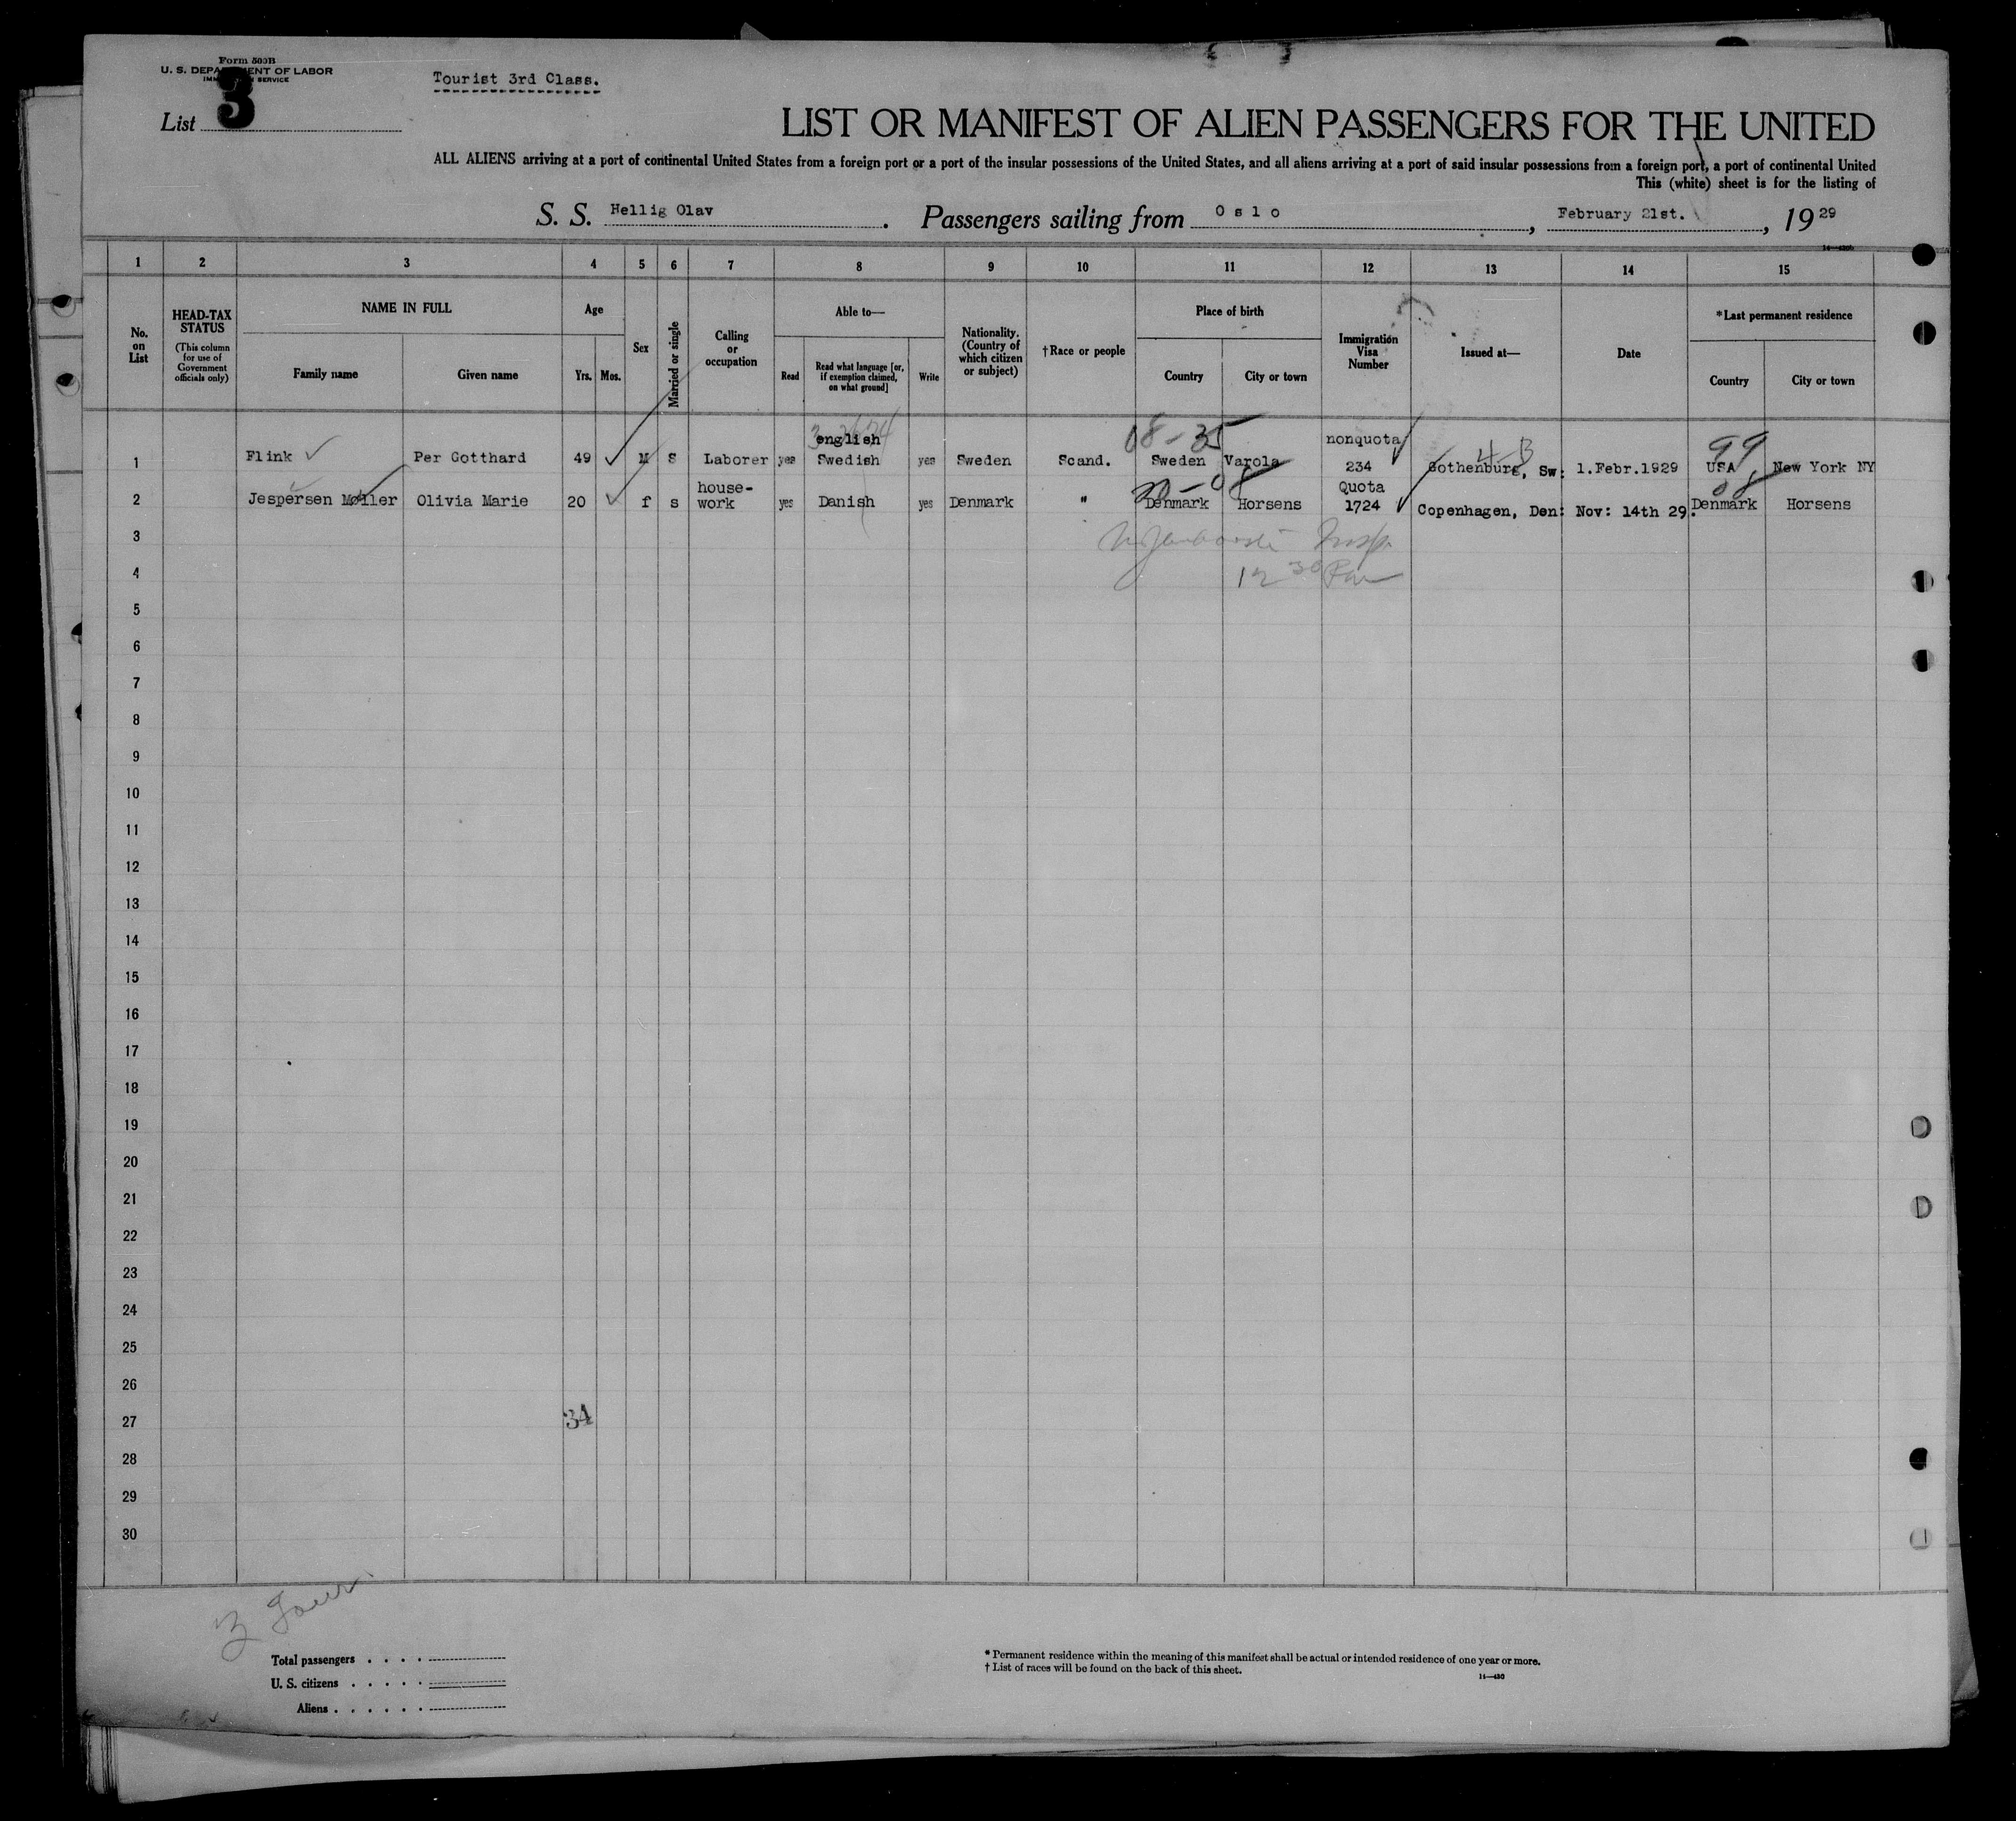 Form 500B
U. S. DEPARTMENT OF LABOR
IMMIGRATION SERVICE
Tourist 3rd Class.
List 3
LIST OR MANIFEST OF ALIEN PASSENGERS FOR THE UNITED
ALL ALIENS arriving at a port of continental United States from a foreign port or a port of the insular possessions of the United States, and all aliens arriving at a port of said insular possessions from a foreign port, a port of continental United
This (white) sheet is for the listing of
S. S. Hellig Olav. Passengers sailing from Oslo, February 21st., 1929
1 2 3 4 5 6 7 8 9 10 11 12 13 14 15
No. on List
HEAD-TAX STATUS
(This column for use of Government officials only)
NAME IN FULL
Family name Given name
Age
Yrs. Mos.
Sex
Married or single
Calling or occupation
Able to—
Read
Read what language [or, if exemption claimed, on what ground]
Write
Nationality. (Country of which citizen or subject)
†Race or people
Place of birth
Country City or town
Immigration Visa Number
Issued at—
Date
*Last permanent residence
Country City or town
english 08-35 nonquota 4-B 99
1 Flink Per Gotthard 49 M S Laborer yes Swedish yes Sweden Scand. Sweden Varola 234 Gothenburg, Sw: 1.Febr.1929 USA New York NY
house- Quota 08
2 Jespersen Møller Olivia Marie 20 f s work yes Danish yes Denmark " Denmark Horsens 1724 Copenhagen, Den: Nov: 14th 29. Denmark Horsens
3
4 12 30 Pm
5
6
7
8
9
10
11
12
13
14
15
16
17
18
19
20
21
22
23
24
25
26
27 34
28
29
30
Total passengers . . . .
U. S. citizens . . . . .
Aliens . . . . . .
* Permanent residence within the meaning of this manifest shall be actual or intended residence of one year or more.
† List of races will be found on the back of this sheet.
14—430